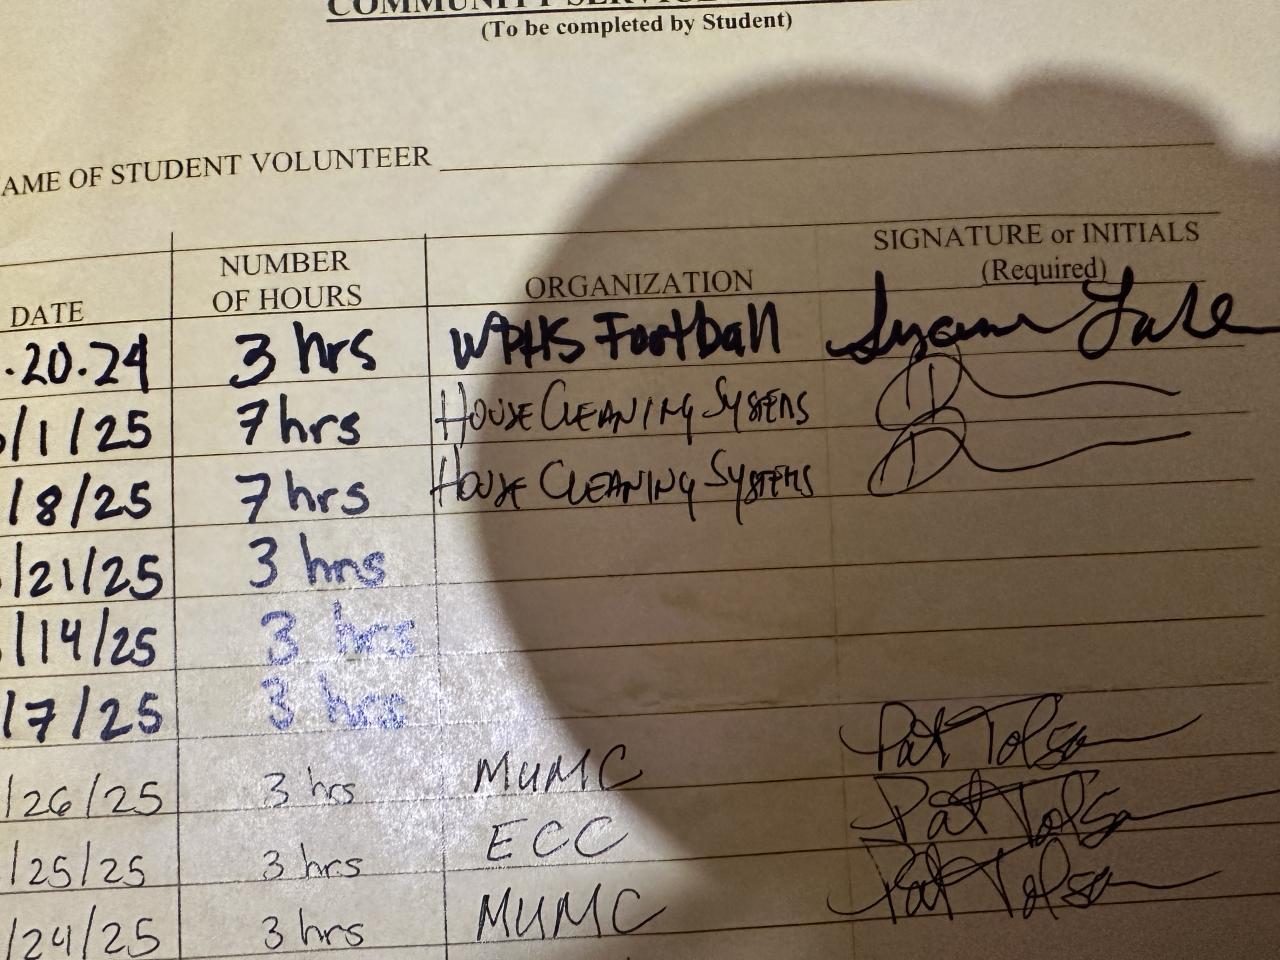 COMMUNITY SERVICE
(To be completed by Student)
AME OF STUDENT VOLUNTEER
DATE NUMBER OF HOURS ORGANIZATION SIGNATURE or INITIALS (Required)
.20.24 3 hrs WPHS Football
/1/25 7 hrs HOUSE CLEANING SYSTEMS
/8/25 7 hrs HOUSE CLEANING SYSTEMS
/21/25 3 hrs
/14/25 3 hrs
/7/25 3 hrs
/26/25 3 hrs MUMC Pat Tolson
/25/25 3 hrs ECC Pat Tolson
/24/25 3 hrs MUMC Pat Tolson